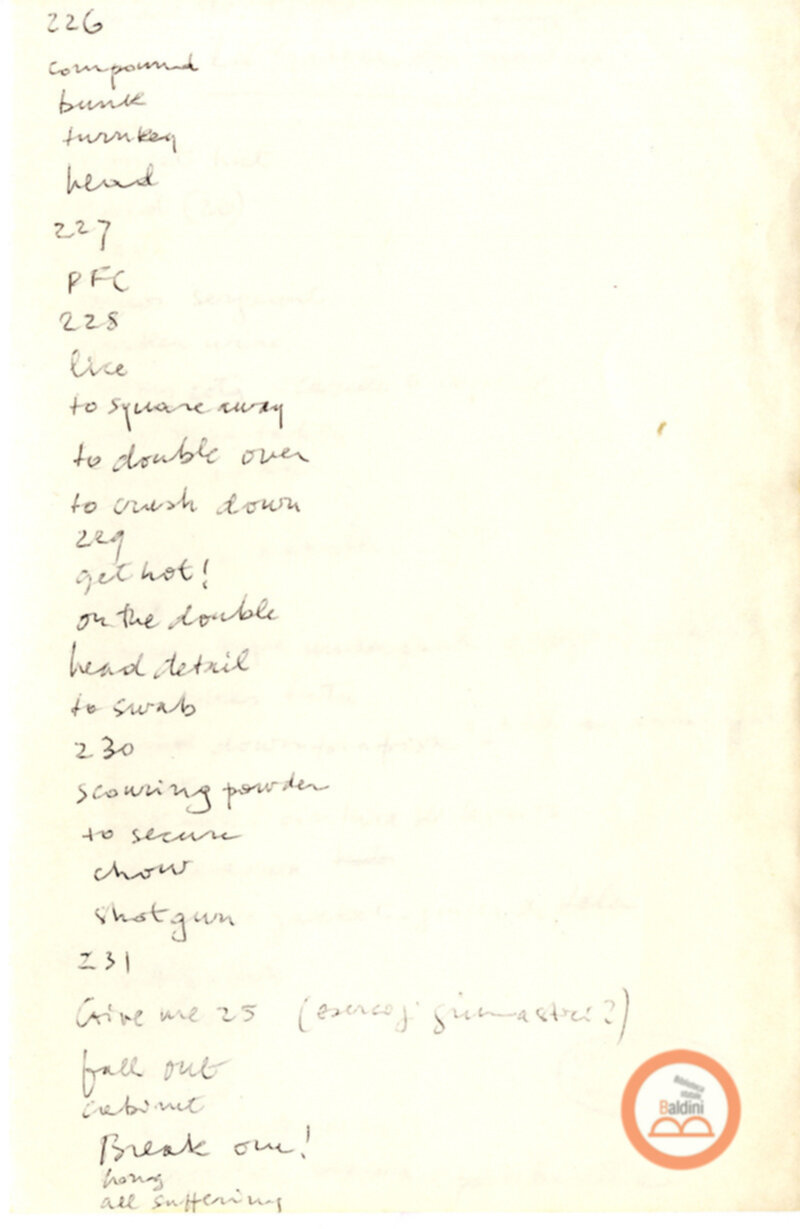 226
compound
bunk
turnkey
head
227
PFC
228
lice
to square away
to double over
to crush down
229
get hot!
on the double
head detail
to swab
230
scouring powder
to secure
chow
shotgun
231
Give me 25 (esercizi ginnastici?)
fall out
cabinet
Break out!
all suffering
Biblioteca
statale
Baldini